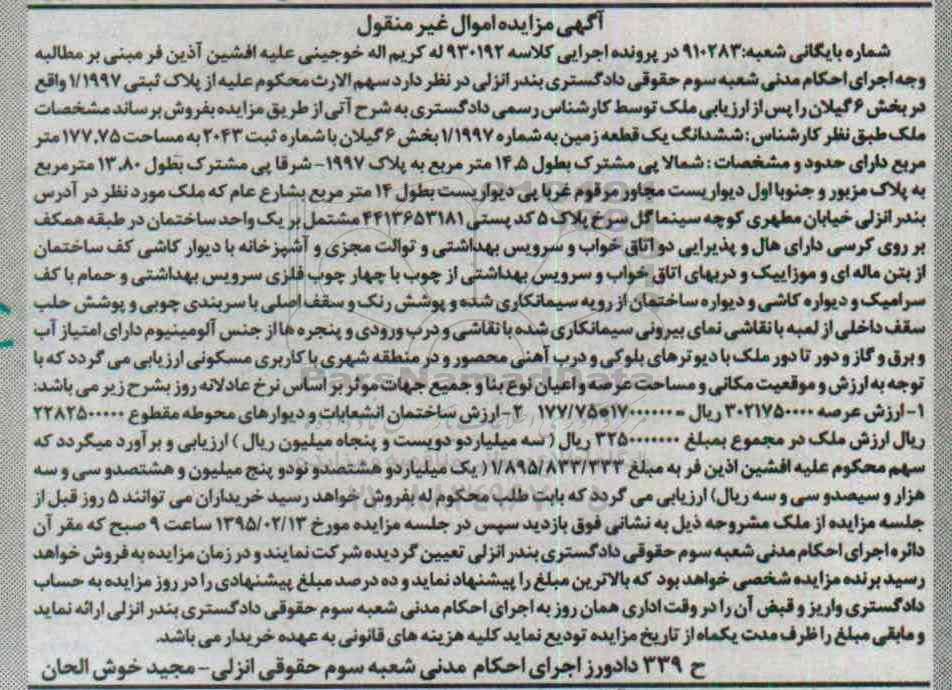 آگهی مزایده اموال غیر منقول
شماره بایگانی شعبه: ۹۱۰۲۸۳ در پرونده اجرایی کلاسه ۹۳۰۱۹۲ له کریم اله خوجینی علیه افشین آذین فر مبنی بر مطالبه
وجه اجرای احکام مدنی شعبه سوم حقوقی دادگستری بندر انزلی در نظر دارد سهم الارث محکوم علیه از پلاک ثبتی ۱/۱۹۹۷ واقع
در بخش ۶ گیلان را پس از ارزیابی ملک توسط کارشناس رسمی دادگستری به شرح آتی از طریق مزایده بفروش برساند مشخصات
ملک طبق نظر کارشناس: ششدانگ یک قطعه زمین به شماره ۱/۱۹۹۷ بخش ۶ گیلان با شماره ثبت ۲۰۴۳ به مساحت ۱۷۷,۷۵ متر
مربع دارای حدود و مشخصات: شمالا پی مشترک بطول ۱۴,۵ متر مربع به پلاک ۱۹۹۷- شرقا پی مشترک بطول ۱۳,۸۰ مترمربع
به پلاک مزبور و جنوبا اول دیواریست مجاور مرقوم غربا پی دیواریست بطول ۱۴ متر مربع بشارع عام که ملک مورد نظر در آدرس
بندر انزلی خیابان مطهری کوچه سینما گل سرخ پلاک ۵ کد پستی ۴۴۱۳۶۵۳۱۸۱ مشتمل بر یک واحد ساختمان در طبقه همکف
بر روی کرسی دارای هال و پذیرایی دو اتاق خواب و سرویس بهداشتی و توالت مجزی و آشپزخانه با دیوار کاشی کف ساختمان
از بتن ماله ای و موزاییک و دربهای اتاق خواب و سرویس بهداشتی از چوب با چهار چوب فلزی سرویس بهداشتی و حمام با کف
سرامیک و دیواره کاشی و دیواره ساختمان از رویه سیمانکاری شده و پوشش رنگ و سقف اصلی با سربندی چوبی و پوشش حلب
سقف داخلی از لمبه با نقاشی نمای بیرونی سیمانکاری شده با نقاشی و درب ورودی و پنجره ها از جنس آلومینیوم دارای امتیاز آب
و برق و گاز و دور تا دور ملک با دیوترهای بلوکی و درب آهنی محصور و در منطقه شهری با کاربری مسکونی ارزیابی می گردد که با
توجه به ارزش و موقعیت مکانی و مساحت عرصه و اعیان نوع بنا و جمیع جهات موثر بر اساس نرخ عادلانه روز بشرح زیر می باشد:
۱- ارزش عرصه ۳۰۲۱۷۵۰۰۰۰ ریال = ۱۷۷/۷۵*۱۷۰۰۰۰۰۰ ۲- ارزش ساختمان انشعابات و دیوارهای محوطه مقطوع ۲۲۸۲۵۰۰۰۰
ریال ارزش ملک در مجموع بمبلغ ۳۲۵۰۰۰۰۰۰۰ ریال (سه میلیارد و دویست و پنجاه میلیون ریال) ارزیابی و برآورد میگردد که
سهم محکوم علیه افشین اذین فر به مبلغ ۱/۸۹۵/۸۳۳/۳۳۳ (یک میلیارد و هشتصدو نودو پنج میلیون و هشتصدو سی و سه
هزار و سیصدو سی و سه ریال) ارزیابی می گردد که بابت طلب محکوم له بفروش خواهد رسید خریداران می توانند ۵ روز قبل از
جلسه مزایده از ملک مشروحه ذیل به نشانی فوق بازدید سپس در جلسه مزایده مورخ ۱۳۹۵/۰۲/۱۳ ساعت ۹ صبح که مقر آن
دائره اجرای احکام مدنی شعبه سوم حقوقی دادگستری بندر انزلی تعیین گردیده شرکت نمایند و در زمان مزایده به فروش خواهد
رسید برنده مزایده شخصی خواهد بود که بالاترین مبلغ را پیشنهاد نماید و ده درصد مبلغ پیشنهادی را در روز مزایده به حساب
دادگستری واریز و قبض آن را در وقت اداری همان روز به اجرای احکام مدنی شعبه سوم حقوقی دادگستری بندر انزلی ارائه نماید
و مابقی مبلغ را ظرف مدت یکماه از تاریخ مزایده تودیع نماید کلیه هزینه های قانونی به عهده خریدار می باشد.
ح ۳۳۹ دادورز اجرای احکام مدنی شعبه سوم حقوقی انزلی - مجید خوش الحان